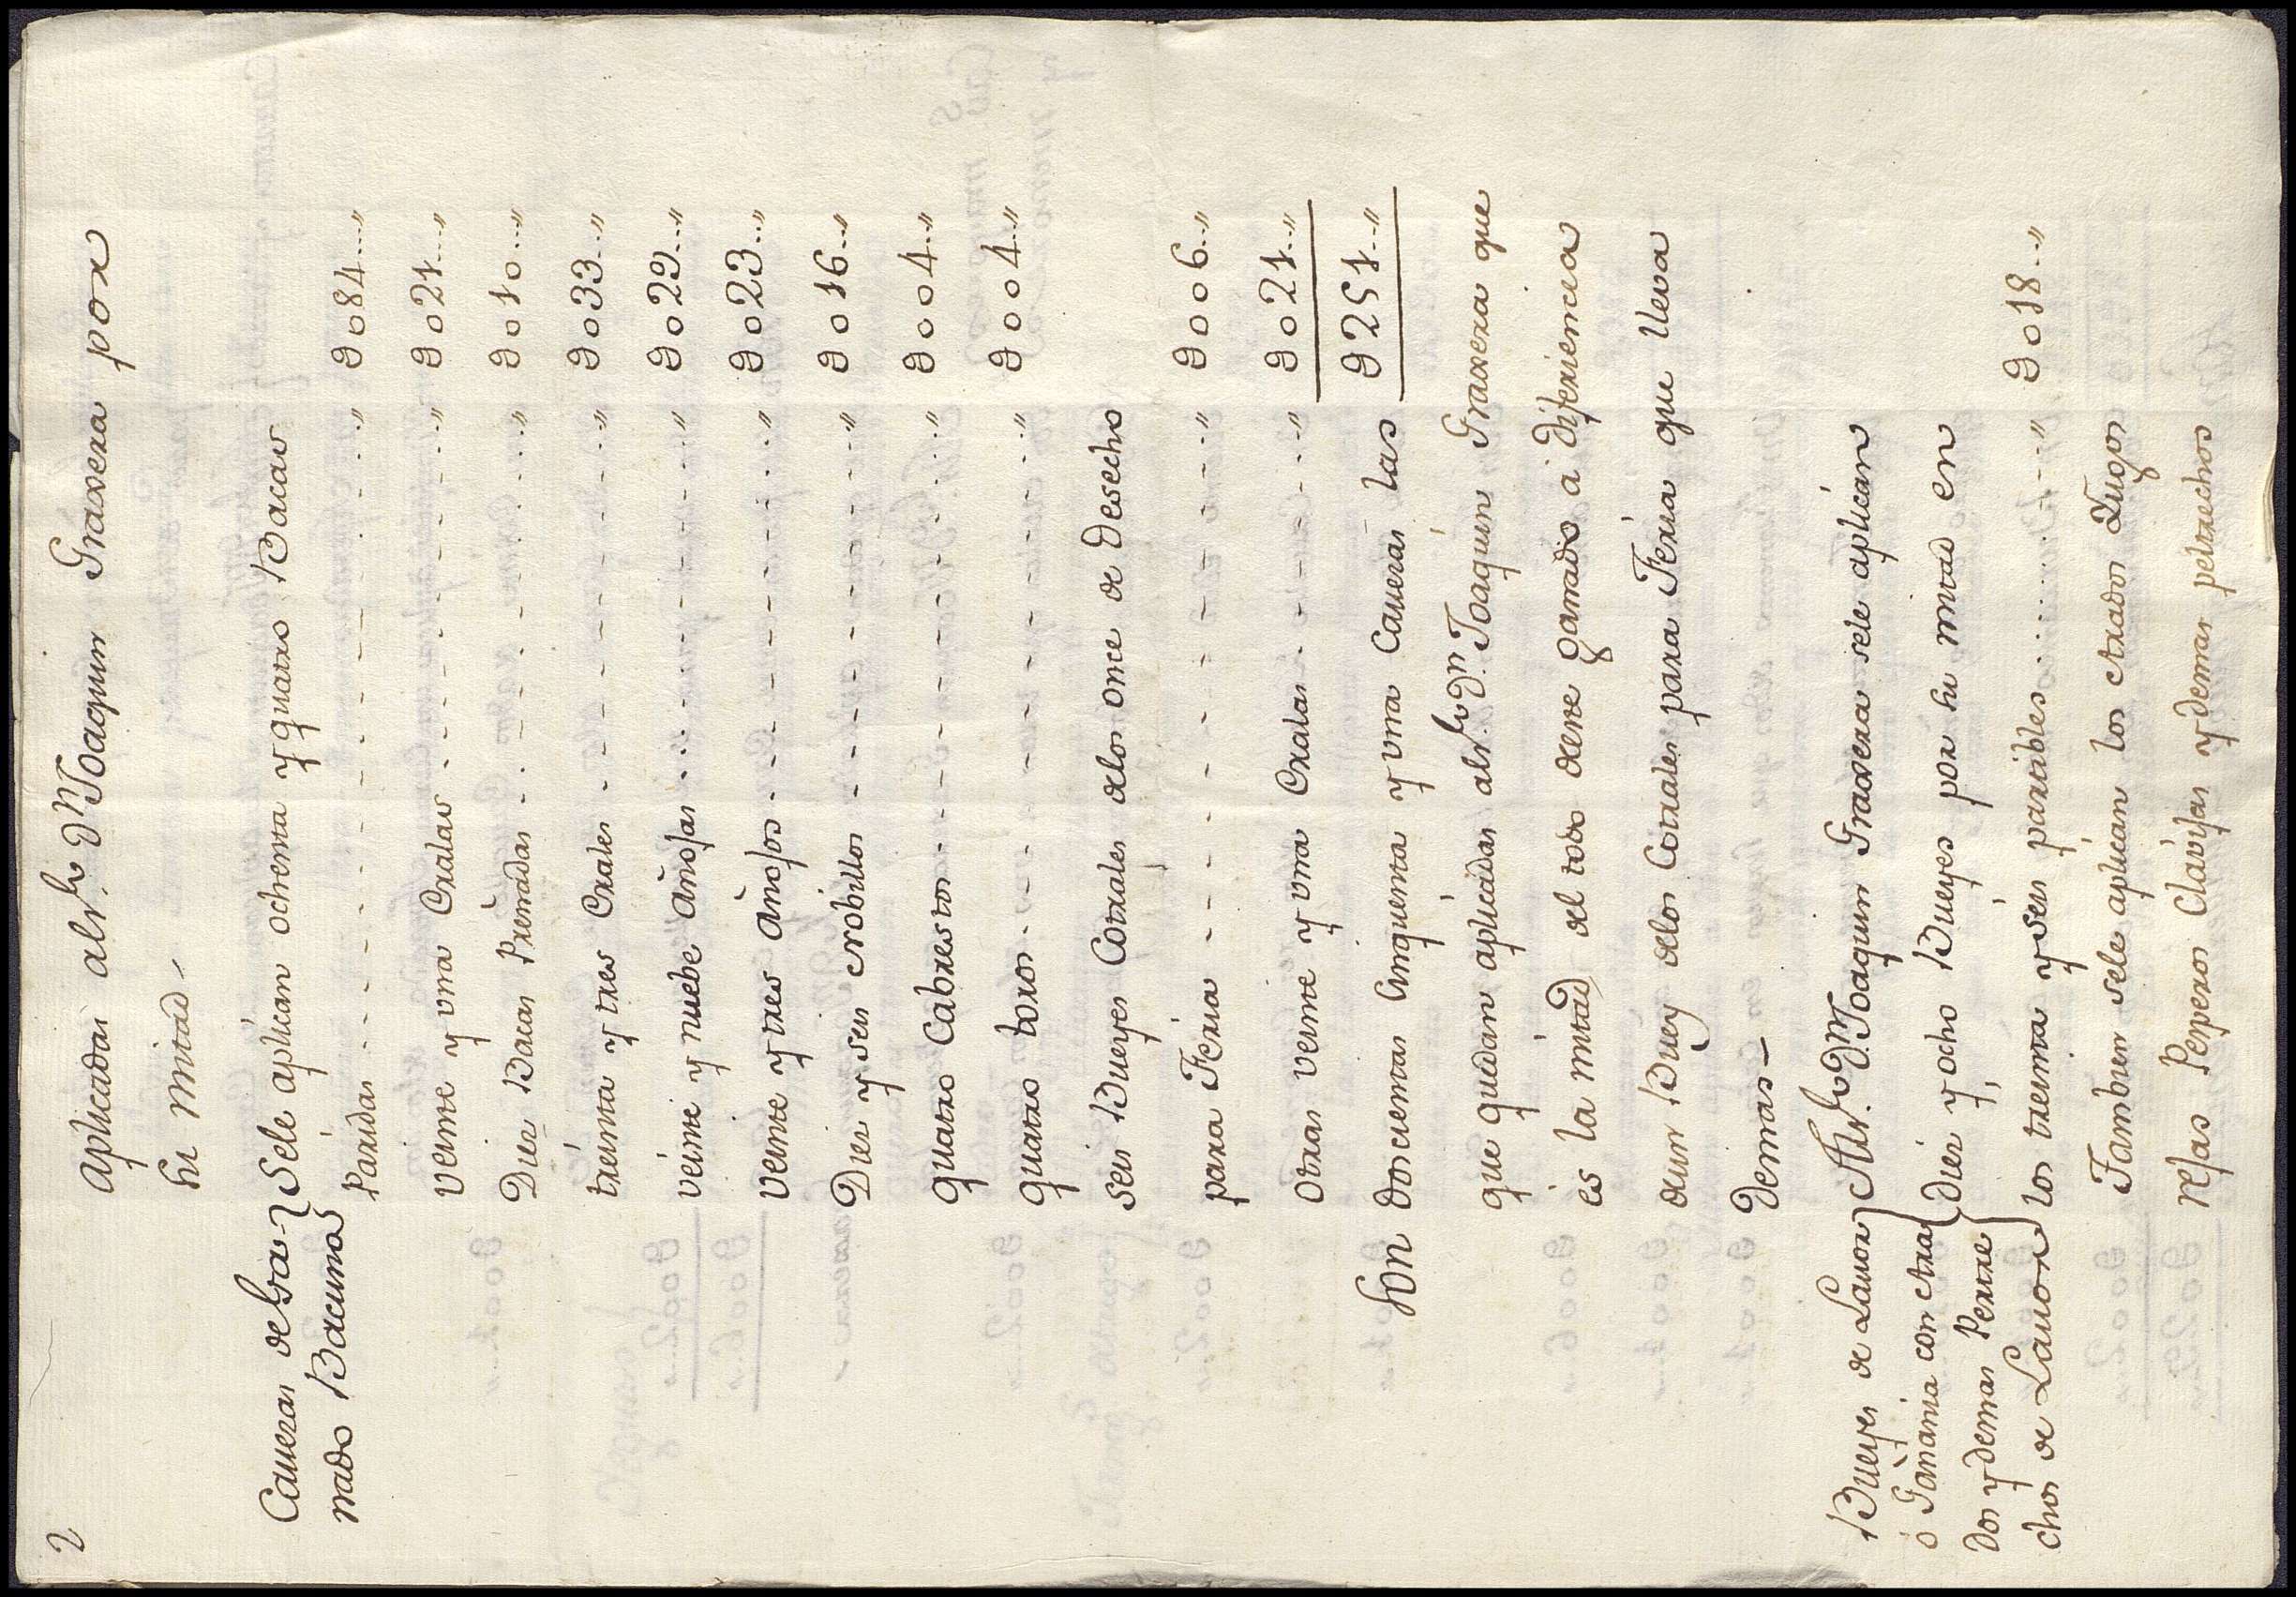 2
Aplicadas al Sr. Dn Joaquin Graxera por
su mitad,
Caueras de Ga-
nado Bacuno
Sele aplican ochenta y quatro Bacas
Paridas - - - - " 9084.."
veinte y una Eralas - - - - " 9021.."
Diez Bacas Preñadas - - - - " 9010.."
treinta y tres Erales - - - - " 9033.."
veinte y nuebe añosas - - - - " 9029.."
veinte y tres añosos - - - - " 9023.."
Diez y seis Nobillos - - - - " 9016.."
quatro Cabrestos - - - - " 9004.."
quatro toros - - - - " 9004.."
seis Bueyes Cotrales delos once de Desecho
para Feria - - - - " 9006.."
otras veinte y una Eralas - - - - " 9021.."
Son Doscientas Cinquenta y una Caueras las 9251.."
que quedan aplicadas al Sr. Dn. Joaquin Graxera que
es la mitad del todo deste ganado á diferiencia
deun Buey delos Cotrales para Feria que lleva
Demas—
Bueyes de Lauor
ó Gañania con Ara
dos y demas Pertre
chos de Lauor
Al Sr. Dn. Joaquin Graxera sele aplican
diez y ocho Bueyes por su mitad en
los treinta y seis partibles - - - - " 9018.."
Tambien sele aplican los Arados Yugos
rejas Pesperos Clavijas y demas peltrechos